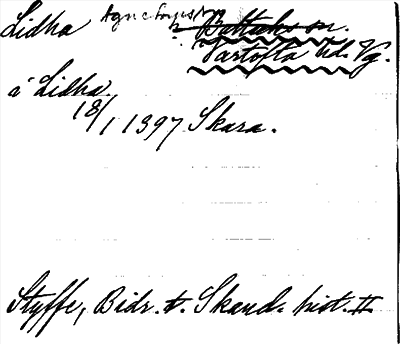 Lidha Agnetorps sn
i Baltaks sn.
Vartofta hd. Vg.
a Lidha
18/1 1397 Skara.
Styffe, Bidr. t. Skand. hist. II